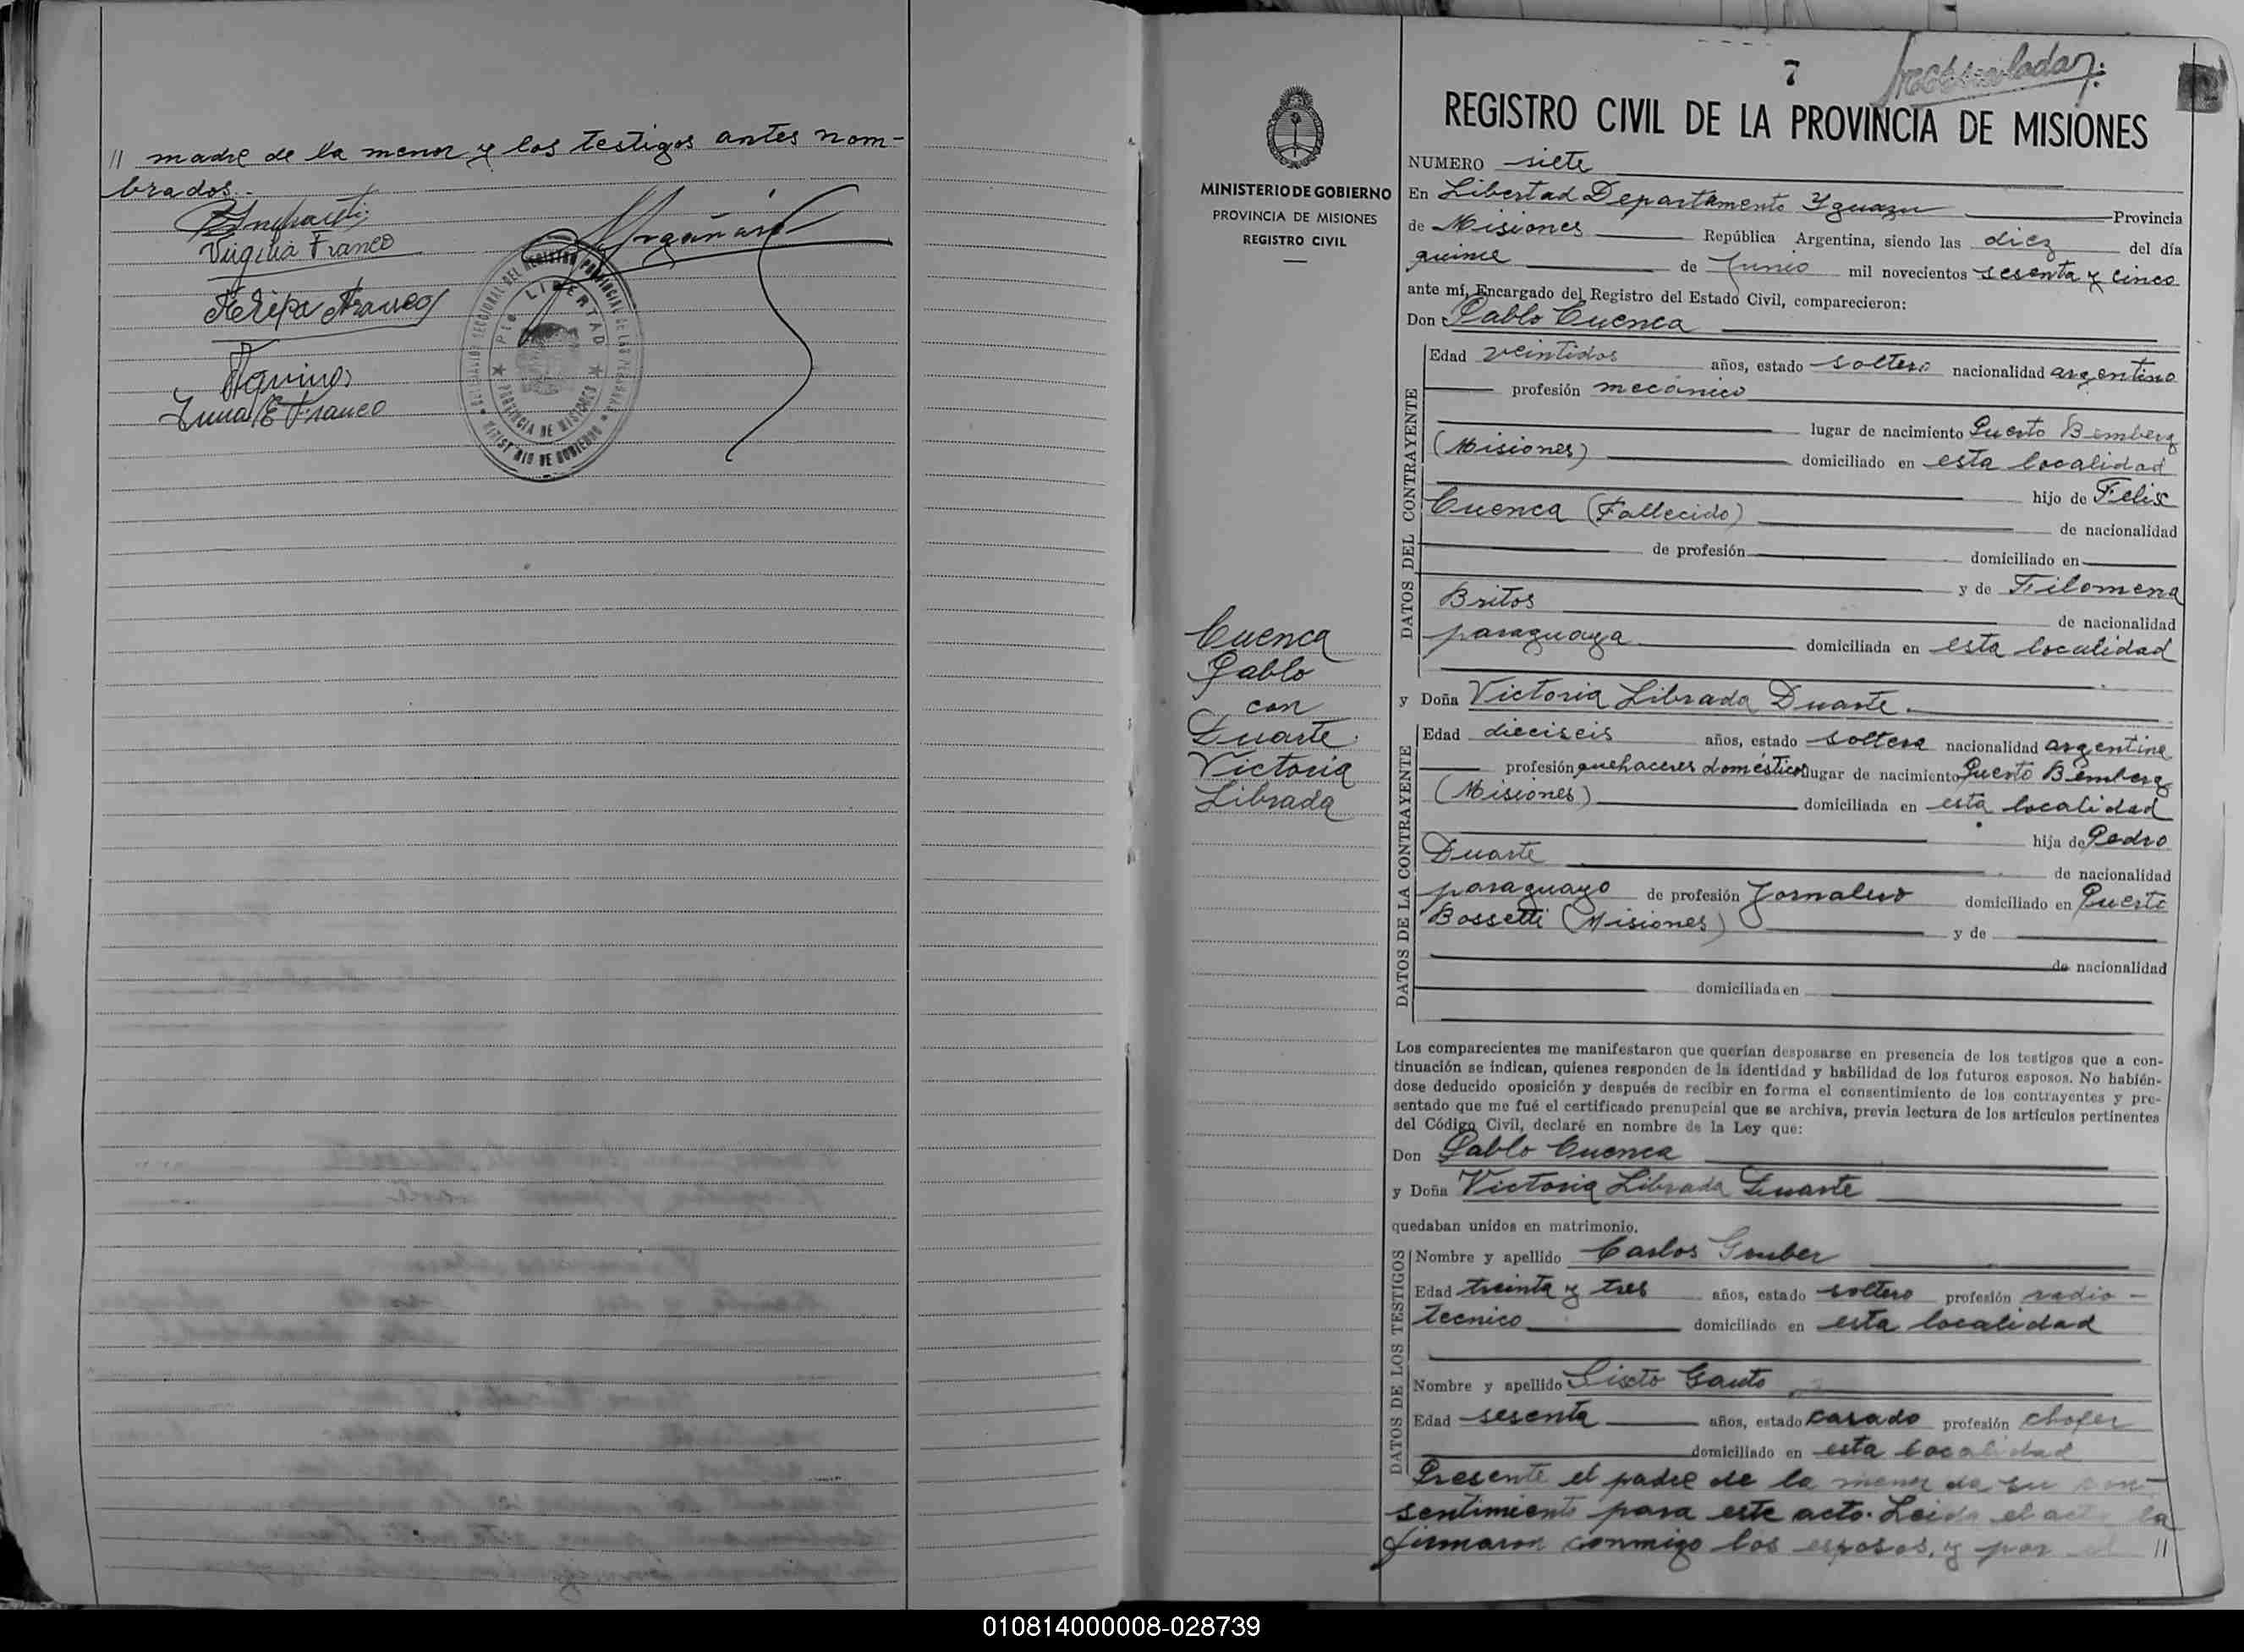 // madre de la menor y los testigos antes nom-
brados.-
Virgilia Franco
Felipa Franco
Aquino
Luna E Franco
LIBERTAD
PROVINCIA DE MISIONES
7
REGISTRO CIVIL DE LA PROVINCIA DE MISIONES
MINISTERIO DE GOBIERNO
PROVINCIA DE MISIONES
REGISTRO CIVIL
NUMERO siete
En Libertad Departamento Yguazu Provincia
de Misiones República Argentina, siendo las diez del día
quince de Junio mil novecientos sesenta y cinco
ante mí, Encargado del Registro del Estado Civil, comparecieron:
Don Pablo Cuenca
DATOS DEL CONTRAYENTE
Edad veintidos años, estado soltero nacionalidad argentino
profesión mecánico
lugar de nacimiento Puerto Bemberg
(Misiones) domiciliado en esta localidad
hijo de Felix
Cuenca (Fallecido) de nacionalidad
de profesión domiciliado en
y de Filomena
Britos de nacionalidad
paraguaya domiciliada en esta localidad
Cuenca
Pablo
con
Duarte
Victoria
Librada
y Doña Victoria Librada Duarte.
DATOS DE LA CONTRAYENTE
Edad dieciseis años, estado soltera nacionalidad argentina
profesión quehaceres domésticos lugar de nacimiento Puerto Bemberg
(Misiones) domiciliada en esta localidad
hija de Pedro
Duarte de nacionalidad
paraguayo de profesión Jornalero domiciliado en Puerto
Bossetti (Misiones) y de
de nacionalidad
domiciliada en
Los comparecientes me manifestaron que querían desposarse en presencia de los testigos que a con-
tinuación se indican, quienes responden de la identidad y habilidad de los futuros esposos. No habién-
dose deducido oposición y después de recibir en forma el consentimiento de los contrayentes y pre-
sentado que me fué el certificado prenupcial que se archiva, previa lectura de los artículos pertinentes
del Código Civil, declaré en nombre de la Ley que:
Don Pablo Cuenca
y Doña Victoria Librada Duarte
quedaban unidos en matrimonio.
DATOS DE LOS TESTIGOS
Nombre y apellido Carlos Gruber
Edad treinta y tres años, estado soltero profesión radio-
tecnico domiciliado en esta localidad
Nombre y apellido Sixto Gauto
Edad sesenta años, estado casado profesión chofer
domiciliado en esta localidad
Presente el padre de la menor da su con-
sentimiento para este acto. Leida el acta la
firmaron conmigo los esposos, y por el //
010814000008-028739